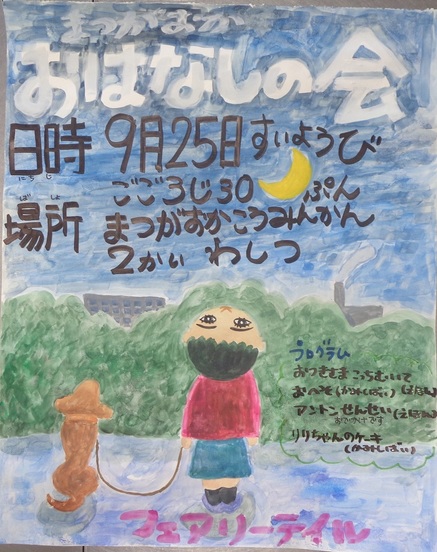 まつがおか
おはなしの会
日時 9月25日すいようび
にちじ
ごご3じ30ぷん
ばしょ
場所 まつがおかこうみんかん
2かい わしつ
プログラム
おつきさまこっちむいて
おへそ(かみしばい)
アントンせんせい(えほん)
おでかけです
りりちゃんのケーキ
(かみしばい)
フェアリーテイル